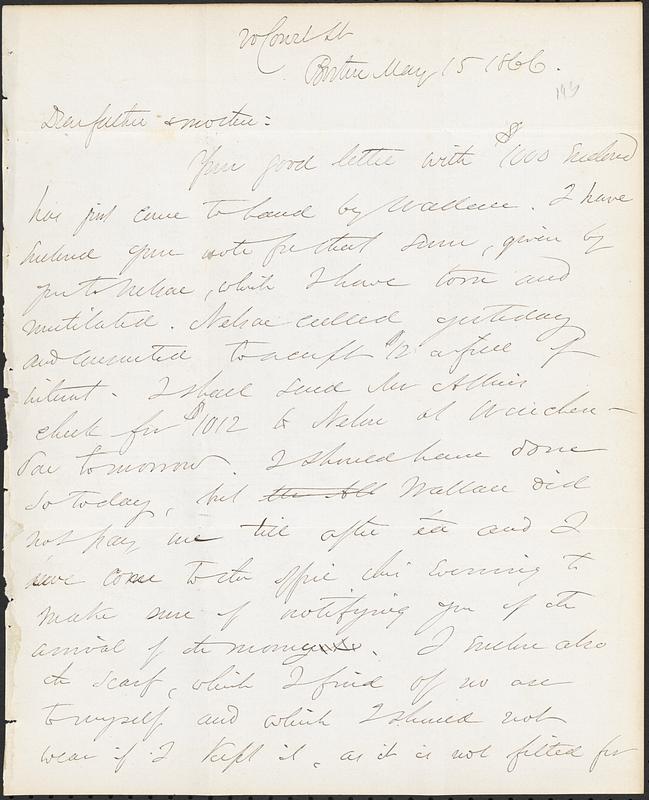 20 Court St
Boston May 15 1866.
Dear father & mother:
Your good letter with $1000 Enclosed
has just come to hand by Wallace. I have
Enclosed your note for that sum, given by
you to Nelson, which I have torn and
mutilated. Nelson called yesterday
and consented to accept $12 in full of
interest. I shall send Mr
check for $1012 to Nelson at Winchen-
don tomorrow. I should have done
so today, but Wallace did
not pay me till after tea and I
have come to the office this Evening to
make sure of notifying you of the
arrival of the money. I Enclose also
the scarf, which I find of no use
to myself and which I should not
wear if I kept it, as it is not fitted for